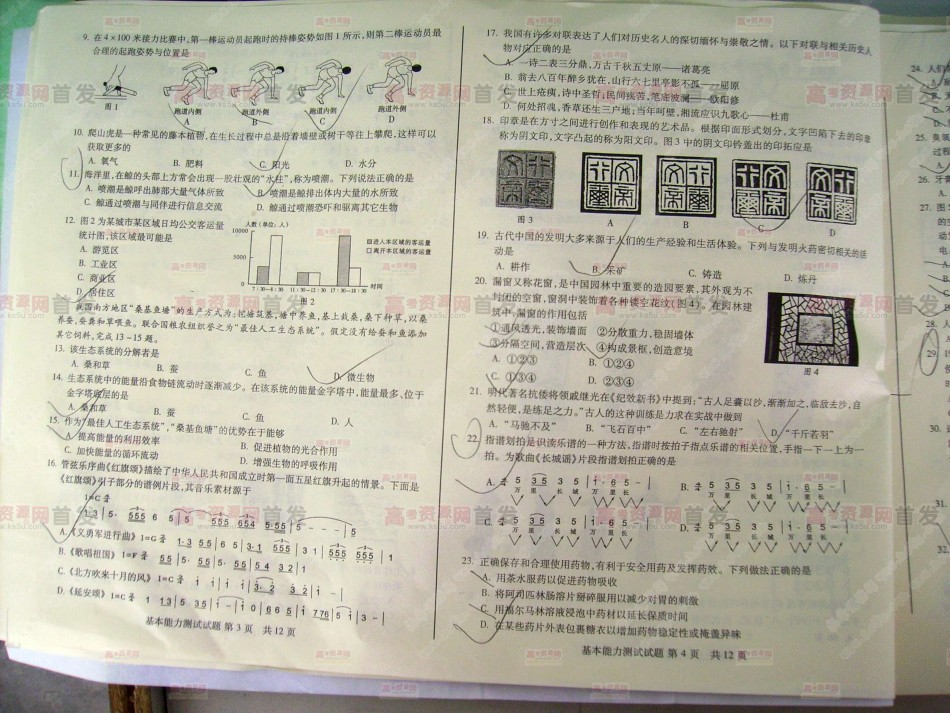 9. 在4×100米接力比赛中,第一棒运动员起跑时的持棒姿势如图1所示,则第二棒运动员最
合理的起跑姿势与位置是
图1
跑道内侧 跑道外侧 跑道内侧 跑道外侧
A B C D
10. 爬山虎是一种常见的藤本植物,在生长过程中总是沿着墙壁或树干等往上攀爬,这样可以
获取更多的
A. 氧气 B. 肥料 C. 阳光 D. 水分
11. 海洋里,在鲸的头部上方常会出现一股壮观的“水柱”,称为喷潮。下列说法正确的是
A. 喷潮是鲸呼出肺部大量气体所致 B. 喷潮是鲸排出体内大量的水所致
C. 鲸通过喷潮与同伴进行信息交流 D. 鲸通过喷潮恐吓和驱离其它生物
12. 图2为某城市某区域日均公交客运量
统计图,该区域最可能是
A. 游览区
B. 工业区
C. 商业区
D. 居住区
人数(单位:人)
10000
5000
0
7:30—8:30 11:30—12:30 17:30—18:30 时间
进入本区域的客运量
离开本区域的客运量
图2
我国南方地区“桑基鱼塘”的生产方式为:挖塘筑基,塘中养鱼,基上栽桑,桑下种草,以桑
养蚕,蚕粪和草喂鱼。联合国粮农组织誉之为“最佳人工生态系统”。假定没有给蚕和鱼添加
其它饲料,完成13~15题。
13. 该生态系统的分解者是
A. 桑和草 B. 蚕 C. 鱼 D. 微生物
14. 生态系统中的能量沿食物链流动时逐渐减少。在该系统的能量金字塔中,能量最多、位于
金字塔底层的是
A. 桑和草 B. 蚕 C. 鱼 D. 人
15. 作为“最佳人工生态系统”,“桑基鱼塘”的优势在于能够
A. 提高能量的利用效率 B. 促进植物的光合作用
C. 加快能量的循环流动 D. 增强生物的呼吸作用
16. 管弦乐序曲《红旗颂》描绘了中华人民共和国成立时第一面五星红旗升起的情景。下面是
《红旗颂》引子部分的谱例片段,其音乐素材源于
A.《义勇军进行曲》1=G
B.《歌唱祖国》1=F
C.《北方吹来十月的风》1=C
D.《延安颂》1=C
基本能力测试试题 第3页 共12页
17. 我国有许多对联表达了人们对历史名人的深切缅怀与崇敬之情。以下对联与相关历史人
物对应正确的是
A. 一诗二表三分鼎,万古千秋五丈原——诸葛亮
B. 翁去八百年醉乡犹在,山行六七里亭影不孤——屈原
C. 世上疮痍,诗中圣哲;民间疾苦,笔底波澜——欧阳修
D. 何处招魂,香草还生三户地;当年呵壁,湘流应识九歌心——杜甫
18. 印章是在方寸之间进行创作和表现的艺术品。根据印面形式划分,文字凹陷下去的印章
称为阴文印,文字凸起的称为阳文印。图3中的阴文印钤盖出的印拓应是
图3 A B C D
19. 古代中国的发明大多来源于人们的生产经验和生活体验。下列与发明火药密切相关的活
动是
A. 耕作 B. 采矿 C. 铸造 D. 炼丹
20. 漏窗又称花窗,是中国园林中重要的造园要素,其外观为不
封闭的空窗,窗洞中装饰着各种镂空花纹(图4)。在园林建
筑中,漏窗的作用包括
①通风透光,装饰墙面 ②分散重力,稳固墙体
③分隔空间,营造层次 ④构成景框,创造意境
A. ①②③ B. ①②④
C. ①③④ D. ②③④
图4
21. 明代著名抗倭将领戚继光在《纪效新书》中提到:“古人足囊以沙,渐渐加之,临敌去沙,自
然轻便,是练足之力。”古人的这种训练是力求在实战中做到
A. “马驰不及” B. “飞石百中” C. “左右驰射” D. “千斤若羽”
22. 指谱划拍是识读乐谱的一种方法,指谱时按拍子指点乐谱的相关位置,手指一下一上为一
拍。为歌曲《长城谣》片段指谱划拍正确的是
A. 5 35 3 5 | 1· 6 5 - |
万 里 长 城 万 里 长
B. 5 35 3 5 | 1· 6 5 - |
万 里 长 城 万 里 长
C. 5 35 3 5 | 1· 6 5 - |
万 里 长 城 万 里 长
D. 5 35 3 5 | 1· 6 5 - |
万 里 长 城 万 里 长
23. 正确保存和合理使用药物,有利于安全用药及发挥药效。下列做法正确的是
A. 用茶水服药以促进药物吸收
B. 将阿司匹林肠溶片掰碎服用以减少对胃的刺激
C. 用福尔马林溶液浸泡中药材以延长保质时间
D. 在某些药片外表包裹糖衣以增加药物稳定性或掩盖异味
基本能力测试试题 第4页 共12页